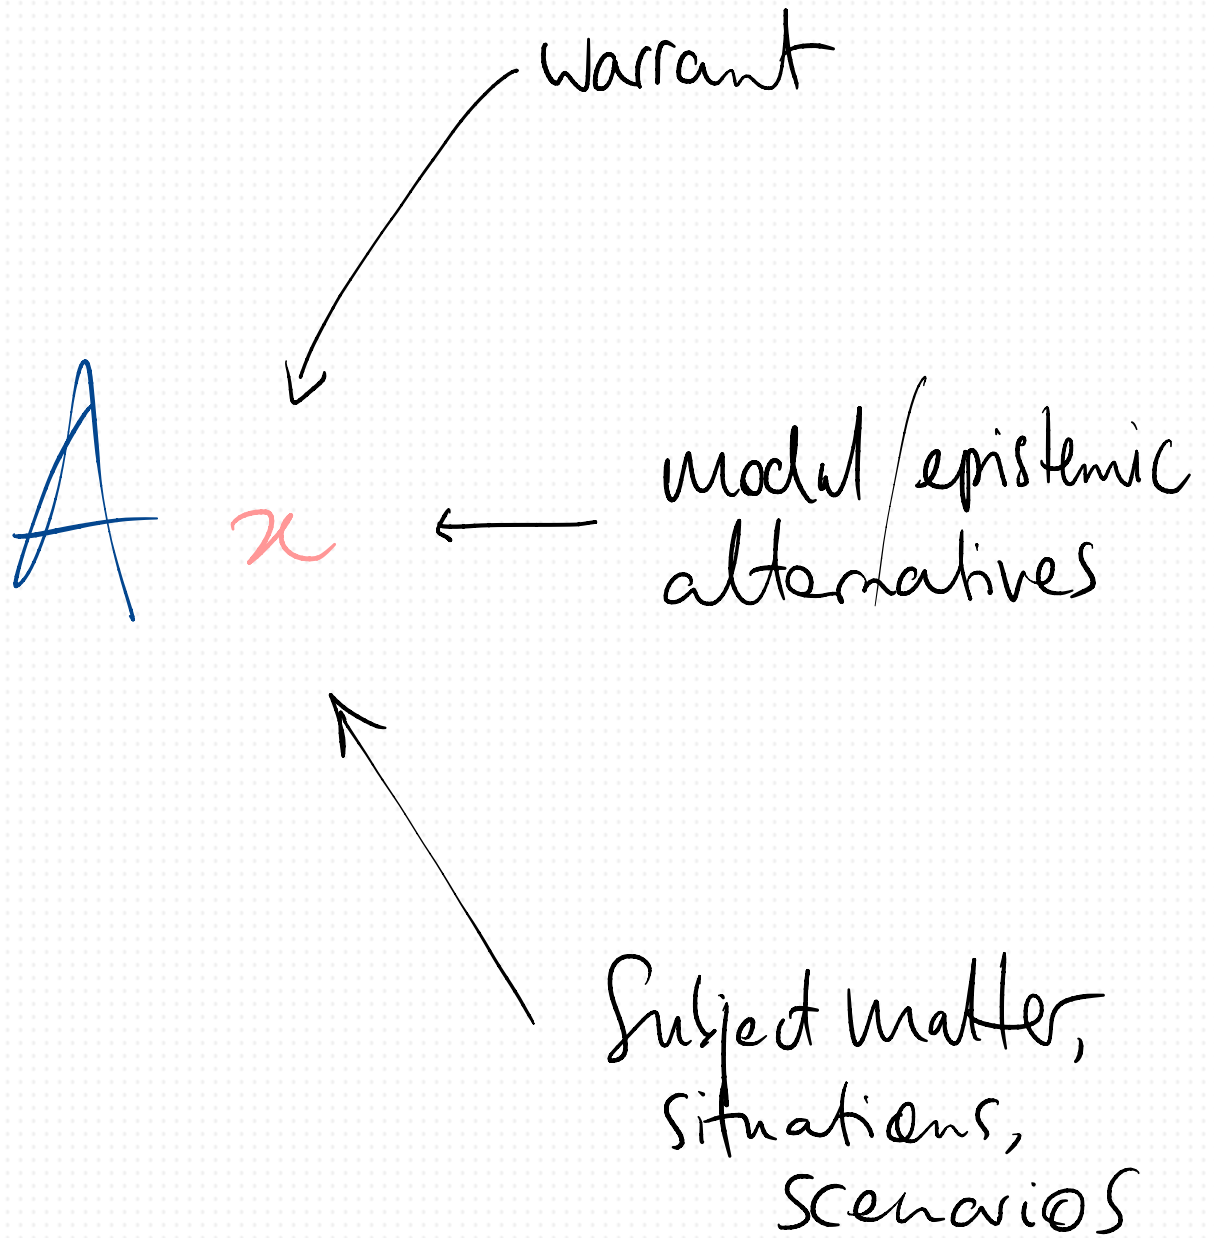 warrant
A x
modal/epistemic
alternatives
Subject matter,
situations,
scenarios